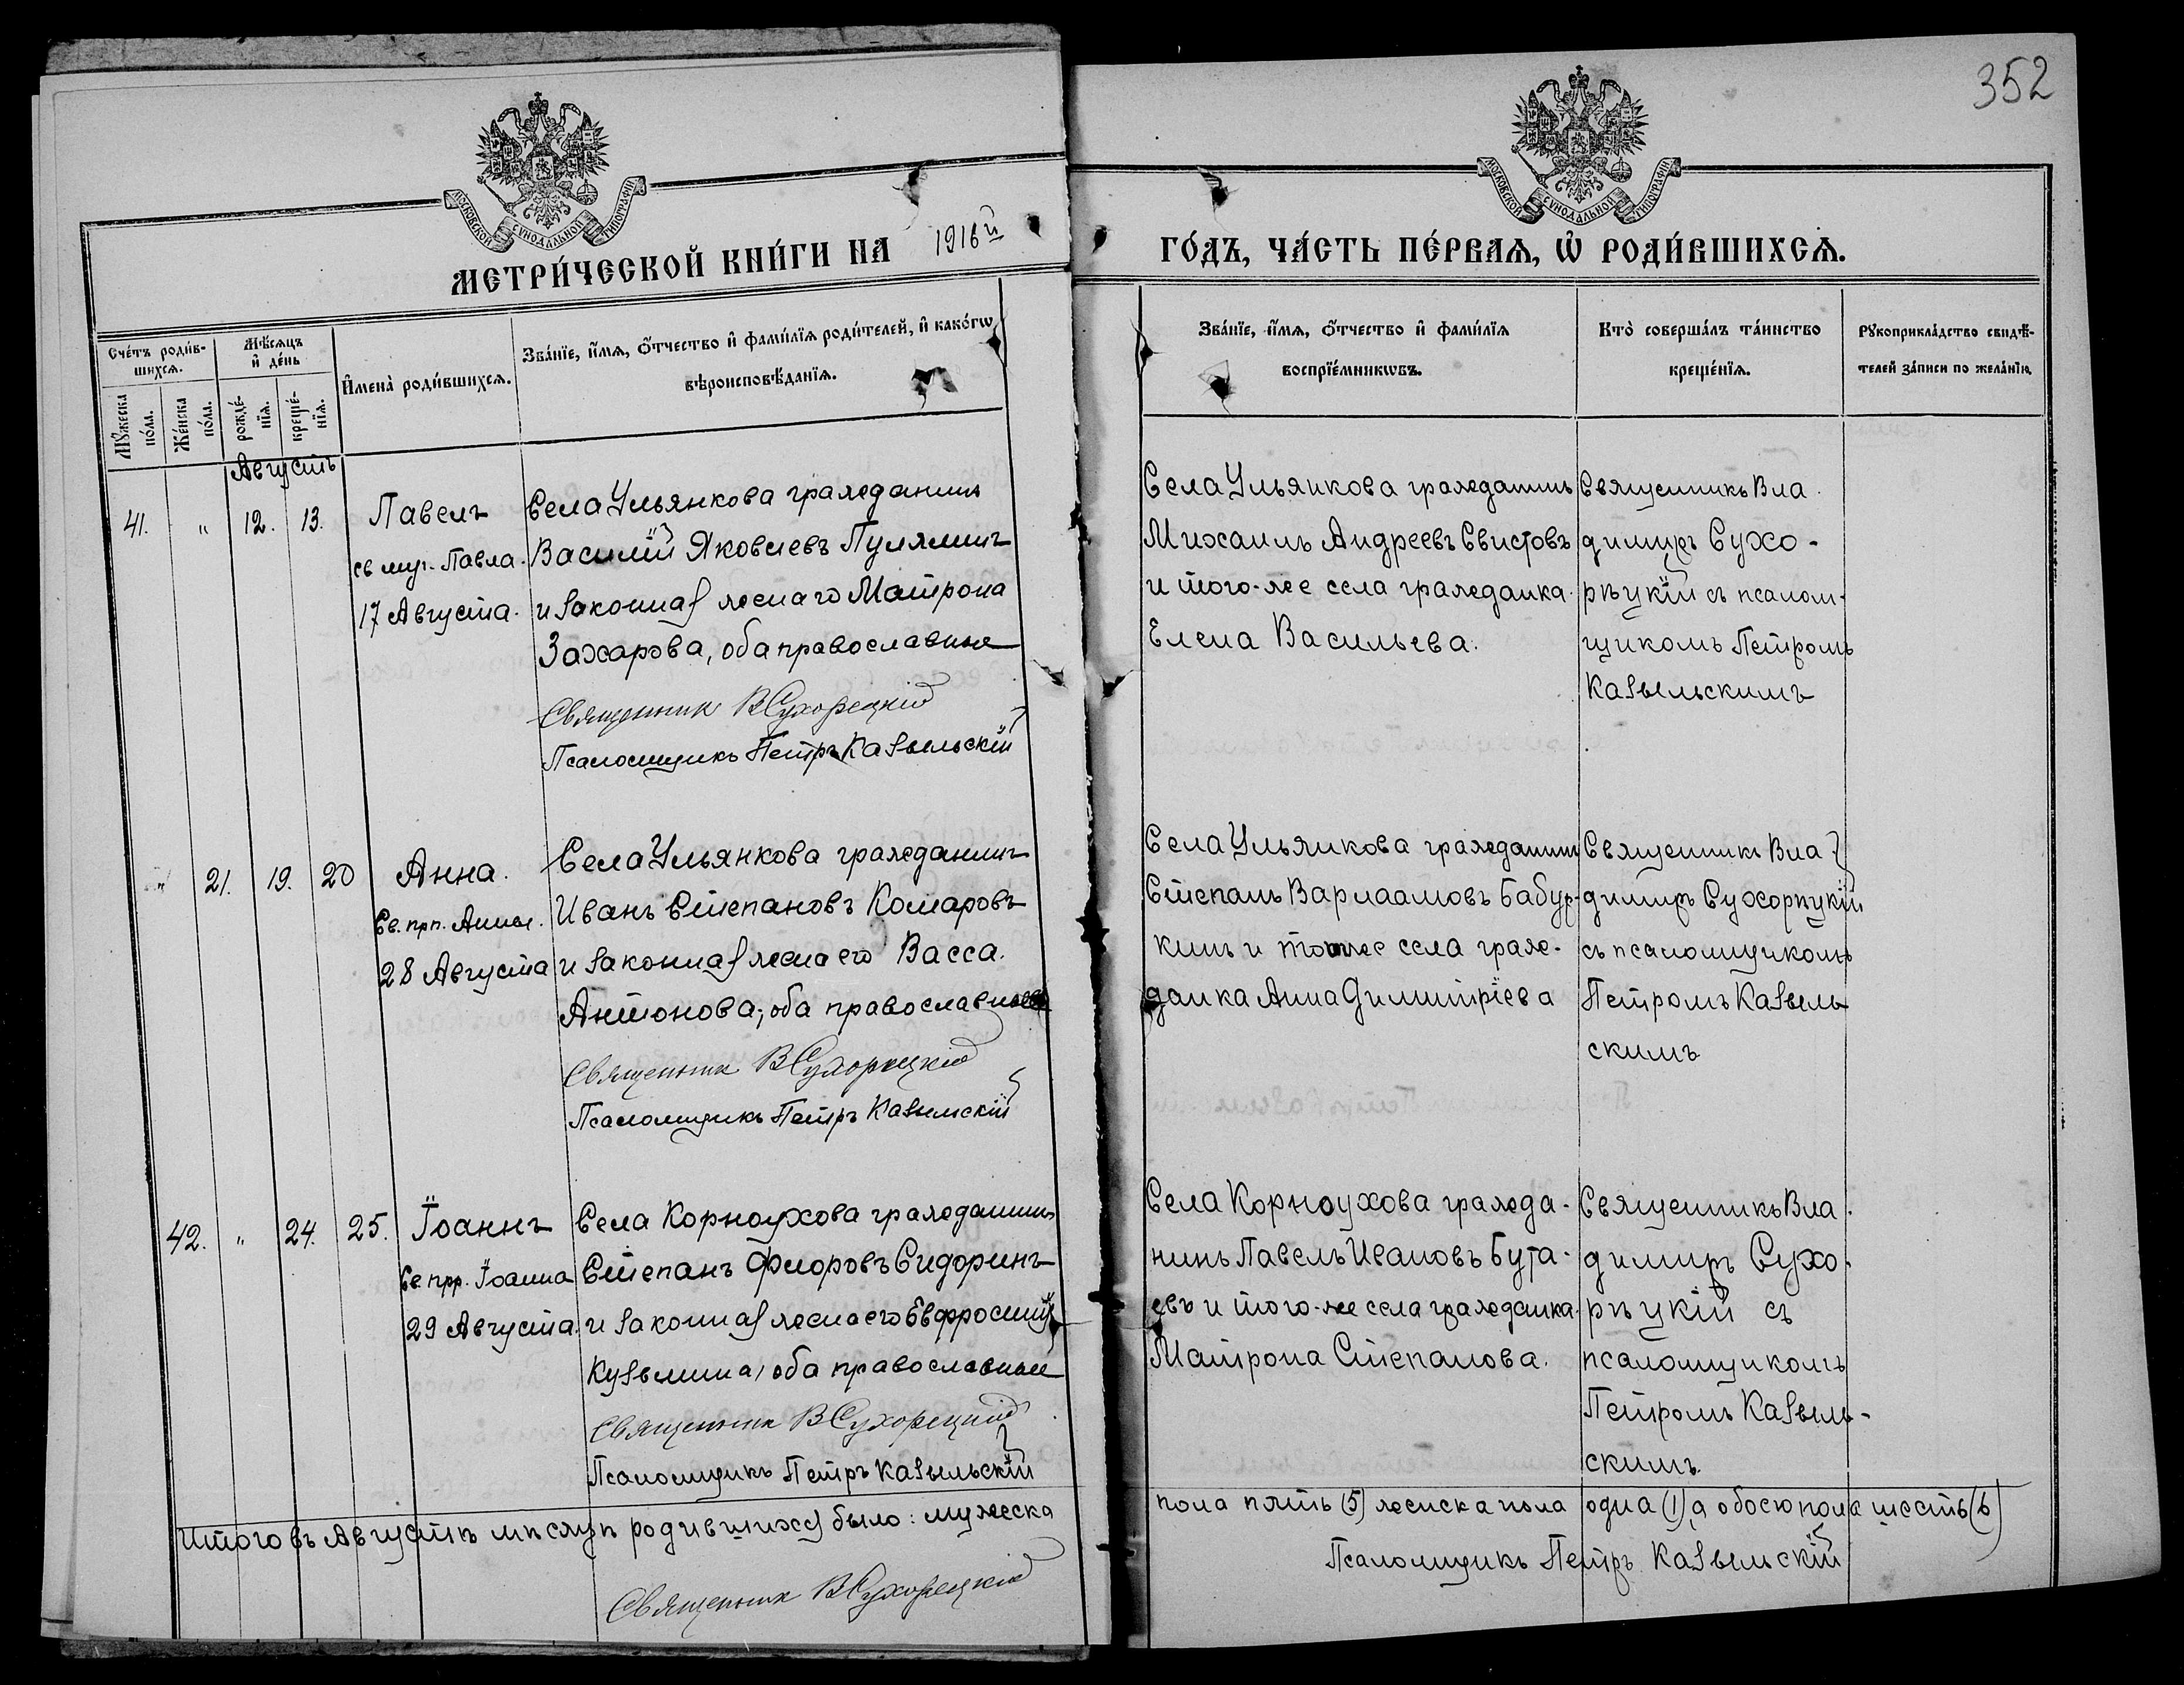 352
МОСКОВСКОЙ СѴНОДАЛЬНОЙ ТИПОГРАФІИ
МОСКОВСКОЙ СѴНОДАЛЬНОЙ ТИПОГРАФІИ
МЕТРИ́ЧЕСКОЙ КНИ́ГИ НА 1916й ГО́ДЪ, ЧА́СТЬ ПЕ́РВАЯ, Ѡ РОДИ́ВШИХСЯ.
Сче́тъ роди́в-
шихся.
Мꙋ́жеска
по́ла.
Же́нска
по́ла.
Мѣ́сяцъ
и҆ де́нь
рожде́-
нїя.
креще́-
нїя.
И҆мена̀ роди́вшихся.
Зва́нїе, и҆́мя, ѻ҆́тчество и҆ фамѝлїя роди́телей, и҆ како́гѡ
вѣроисповѣ́данїя.
Зва́нїе, и҆́мя, ѻ҆́тчество и҆ фами́лїя
воспрїе́мникѡвъ.
Кто̀ соверша́лъ та́инство
креще́нїя.
Рꙋкоприкла́дство свидѣ́-
телей за́писи по жела́нїю.
Августъ
41. " 12. 13.
Павелъ
св муч. Павла.
17 Августа.
Села Ульянкова гражданинъ
Василій Яковлевъ Пулялинъ
и законная жена его Матрона
Захарова, оба православные
Священник ВСухорецкій
Псаломщикъ Петръ Казыльскій
Села Ульянкова гражданинъ
Михаилъ Андреевъ Свистовъ
и того-же села гражданка
Елена Васильева.
Священникъ Вла
димиръ Сухо-
рѣцкій съ псалом-
щикомъ Петромъ
Казыльскимъ
" 21. 19. 20
Анна.
Св. прп. Анны.
28 Августа
Села Ульянкова гражданинъ
Иванъ Степановъ Комаровъ
и законная жена его Васса
Антонова, оба православные
Священник ВСухорецкій
Псаломщикъ Петръ Казыльскій
Села Ульянкова гражданинъ
Степанъ Варлаамовъ Бабур-
кинъ и тогоже села граж-
данка Анна Димитріева
Священникъ Вла
димиръ Сухорѣцкій
съ псаломщикомъ
Петромъ Казыль
скимъ
42. " 24. 25.
Іоаннъ
Св. прр. Іоанна
29 Августа.
Села Корноухова гражданинъ
Степанъ Флоровъ Сидоринъ
и законная жена его Евфросинія
Кузьмина, оба православные
Священник ВСухорецкій
Псаломщикъ Петръ Казыльскій
Села Корноухова гражда-
нинъ Павелъ Ивановъ Бута-
евъ и того-же села гражданка
Матрона Степанова.
Священникъ Вла
димиръ Сухо-
рѣцкій съ
псаломщикомъ
Петромъ Казыль-
скимъ.
Итого въ Августѣ мѣсяцѣ родившихся было: мужеска
пола пять (5) женска пола одна (1), а обоего пола шесть (6)
Священник ВСухорецкій
Псаломщикъ Петръ Казыльскій